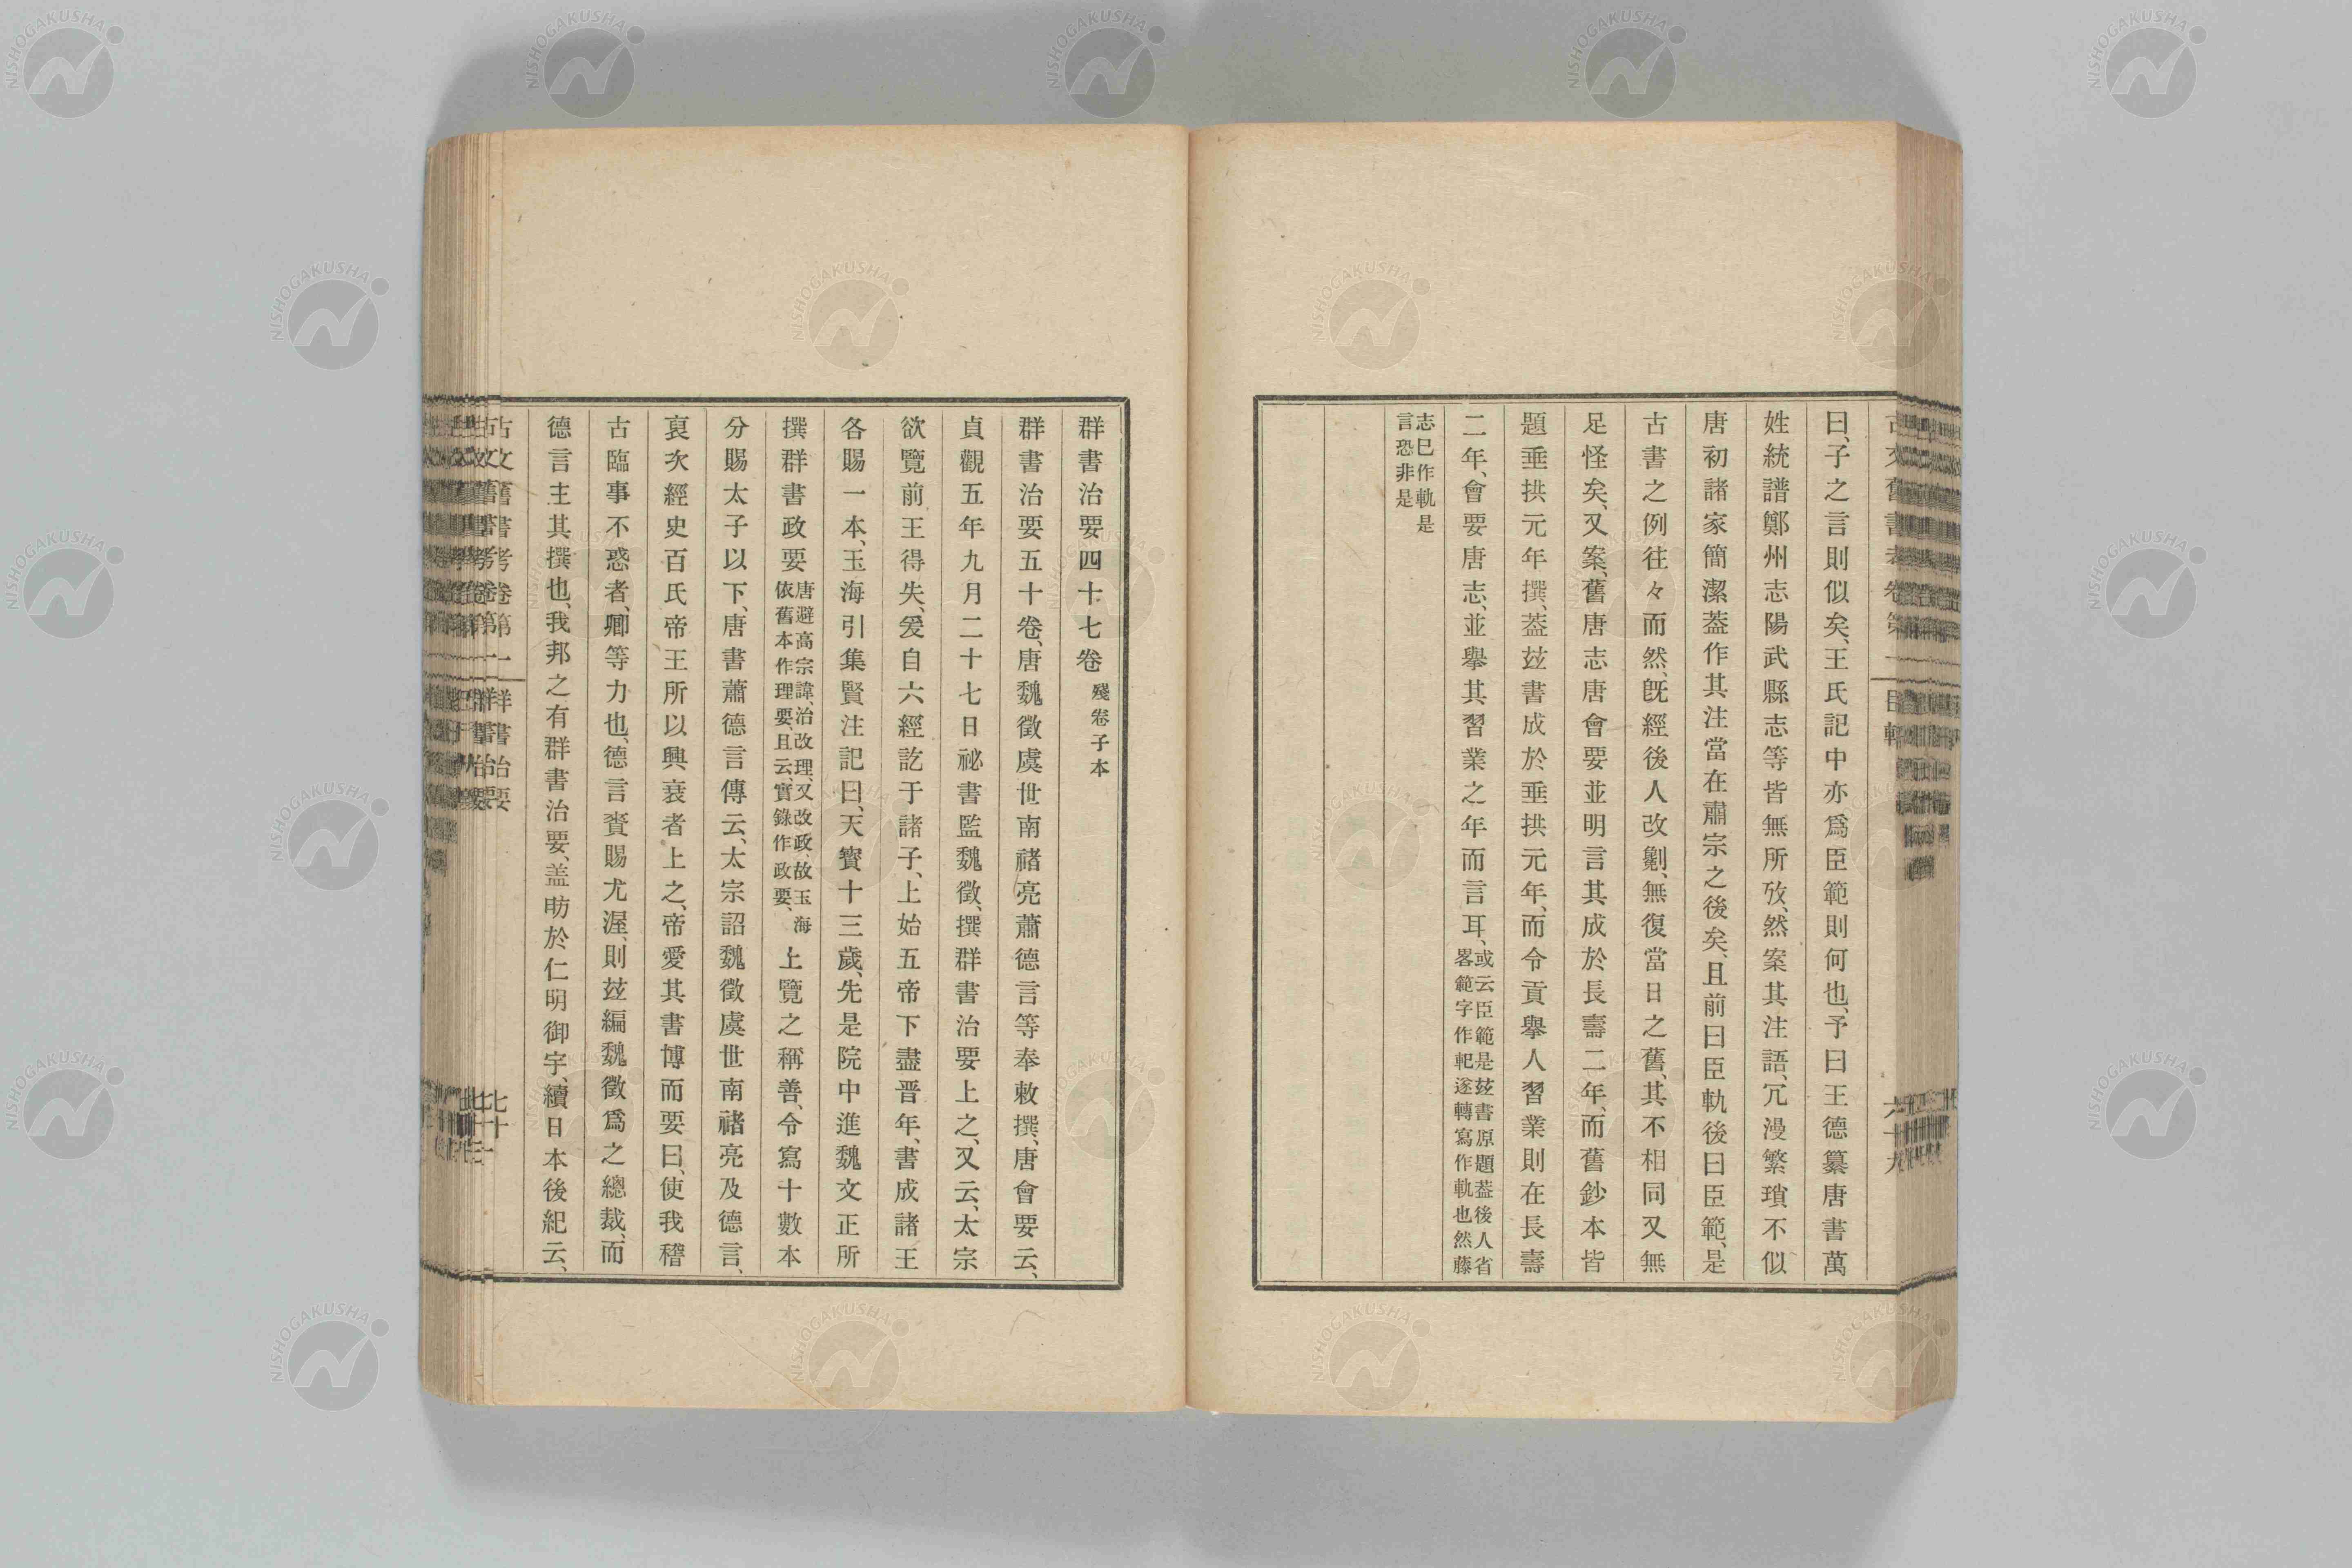 曰、子之言則似矣、王氏記中亦爲臣範則何也、予曰王德纂唐書萬
姓統譜鄭州志陽武縣志等皆無所攷、然案其注語、冗漫繁瑣不似
唐初諸家簡潔蓋作其注當在肅宗之後矣、且前曰臣軌後曰臣範、是
古書之例往々而然、既經後人改劖、無復當日之舊、其不相同又無
足怪矣、又案、舊唐志唐會要並明言其成於長壽二年、而舊鈔本皆
題垂拱元年撰、蓋玆書成於垂拱元年、而令貢擧人習業則在長壽
二年、會要唐志、並擧其習業之年而言耳、
或云臣範是玆書原題蓋後人省
畧範字作軓遂轉寫作軌也然藤
志已作軌是
言恐非是
群書治要四十七卷 殘卷子本
群書治要五十卷、唐魏徵虞世南禇亮蕭德言等奉敕撰、唐會要云、
貞觀五年九月二十七日祕書監魏徵、撰群書治要上之、又云、太宗
欲覽前王得失、爰自六經訖于諸子、上始五帝下盡晋年、書成諸王
各賜一本、玉海引集賢注記曰、天寶十三歲、先是院中進魏文正所
撰群書政要
唐避高宗諱、治改理、又改政、故玉海
依舊本作理要、且云、實錄作政要、
上覽之稱善、令寫十數本
分賜太子以下、唐書蕭德言傳云、太宗詔魏徵虞世南禇亮及德言、
裒次經史百氏帝王所以興衰者上之、帝愛其書博而要曰、使我稽
古臨事不惑者、卿等力也、德言賚賜尤渥、則玆編魏徵爲之總裁、而
德言主其撰也、我邦之有群書治要、盖昉於仁明御宇、續日本後紀云、